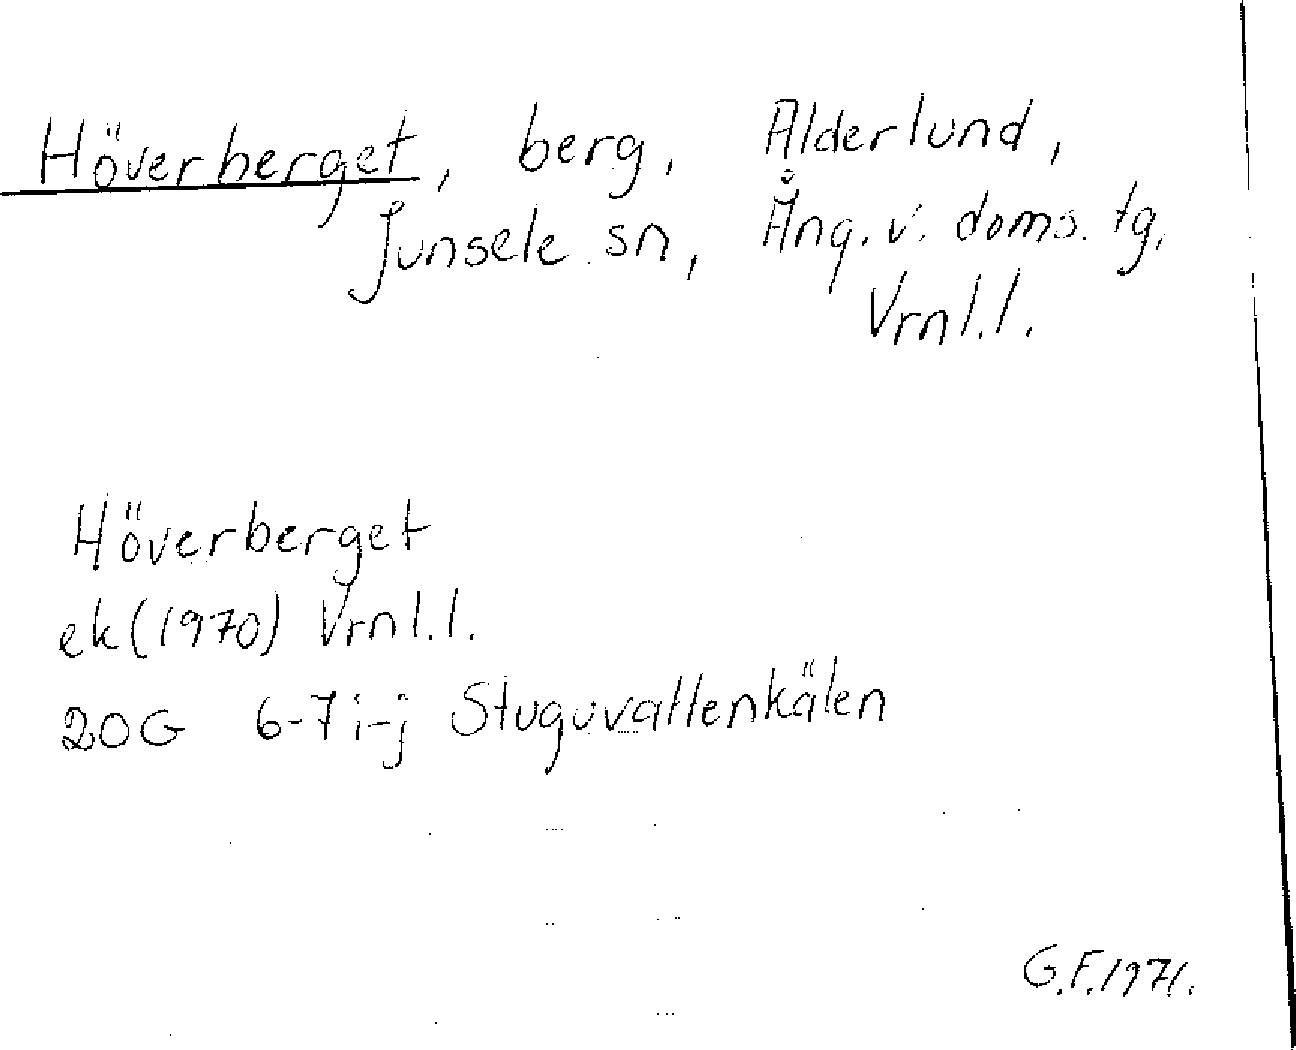 Höverberget, berg, Ålderlund,
Junsele sn, Ång. v. doms. tg,
Vrnl.l.
Höverberget
ek(1970) Vrnl.l.
20G 6-7 i-j Stuguvattenkälen
G.F.1971.